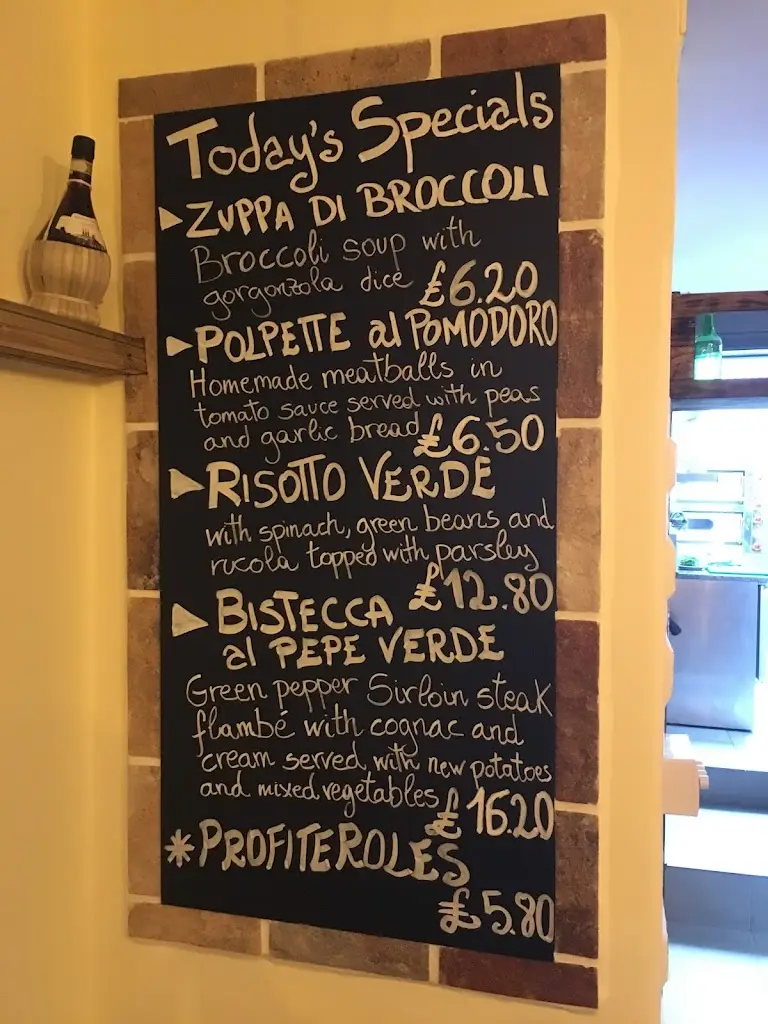 Today's Specials
ZUPPA DI BROCCOLI
Broccoli soup with
gorgonzola dice £6.20
POLPETTE al POMODORO
Homemade meatballs in
tomato sauce served with peas
and garlic bread £6.50
RISOTTO VERDE
with spinach, green beans and
rucola topped with parsley
£12.80
BISTECCA
al PEPE VERDE
Green pepper Sirloin steak
flambé with cognac and
cream served with new potatoes
and mixed vegetables £16.20
* PROFITEROLES
£5.80